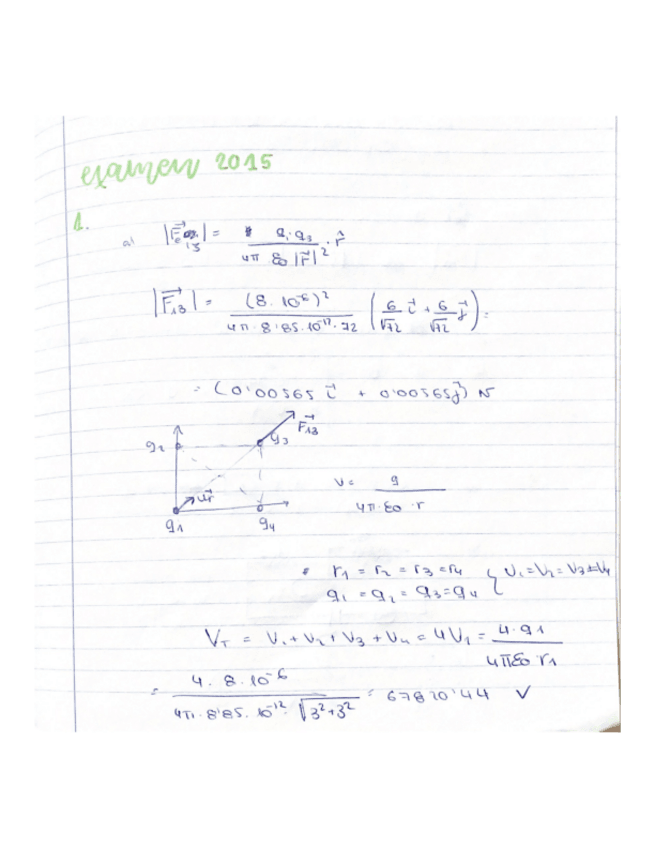 examen 2015
1.
a) |F⃗e 13| = q1·q3 / 4π ε0 |r⃗|² · r̂
|F⃗13| = (8·10⁻⁶)² / 4π·8'85·10⁻¹²·72 (6/√72 i⃗ + 6/√72 j⃗) =
= (0'00565 i⃗ + 0'00565 j⃗) N
F⃗13
q2 q3
u⃗r
q1 q4
V = q / 4π·ε0·r
• r1 = r2 = r3 = r4 { V1 = V2 = V3 = V4
q1 = q2 = q3 = q4
VT = V1 + V2 + V3 + V4 = 4V1 = 4·q1 / 4πε0·r1
= 4·8·10⁻⁶ / 4π·8'85·10⁻¹²·√3²+3² = 67820'44 V